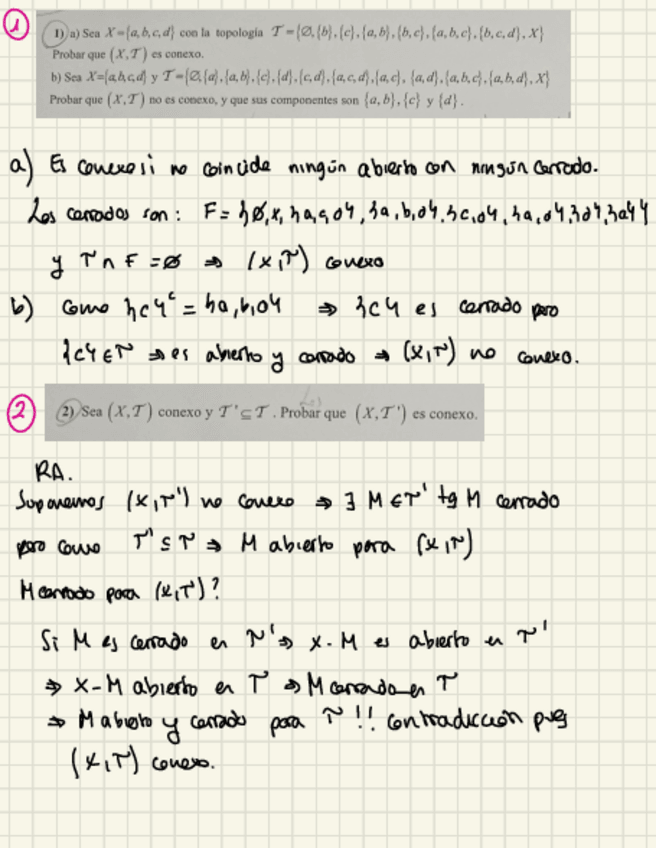 1
1) a) Sea X={a,b,c,d} con la topología T={∅,{b},{c},{a,b},{b,c},{a,b,c},{b,c,d},X}
Probar que (X,T) es conexo.
b) Sea X={a,b,c,d} y T={∅,{a},{a,b},{c},{d},{c,d},{a,c,d},{a,c},{a,d},{a,b,c},{a,b,d},X}
Probar que (X,T) no es conexo, y que sus componentes son {a,b},{c} y {d}.
a) Es conexo si no coincide ningún abierto con ningún cerrado.
Los cerrados son: F={∅,X,{a,c,d},{a,b,d},{c,d},{a,d},{d},{a}}
y T∩F=∅ ⇒ (X,T) conexo
b) Como {c}ᶜ={a,b,d} ⇒ {c} es cerrado pero
{c}∈T ⇒ es abierto y cerrado ⇒ (X,T) no conexo.
2
2) Sea (X,T) conexo y T'⊆T. Probar que (X,T') es conexo.
RA.
Suponemos (X,T') no conexo ⇒ ∃ M∈T' tq M cerrado
pero como T'⊆T ⇒ M abierto para (X,T)
M cerrado para (X,T)?
Si M es cerrado en T' ⇒ X-M es abierto en T'
⇒ X-M abierto en T ⇒ M cerrado en T
⇒ M abierto y cerrado para T!! Contradicción pues
(X,T) conexo.